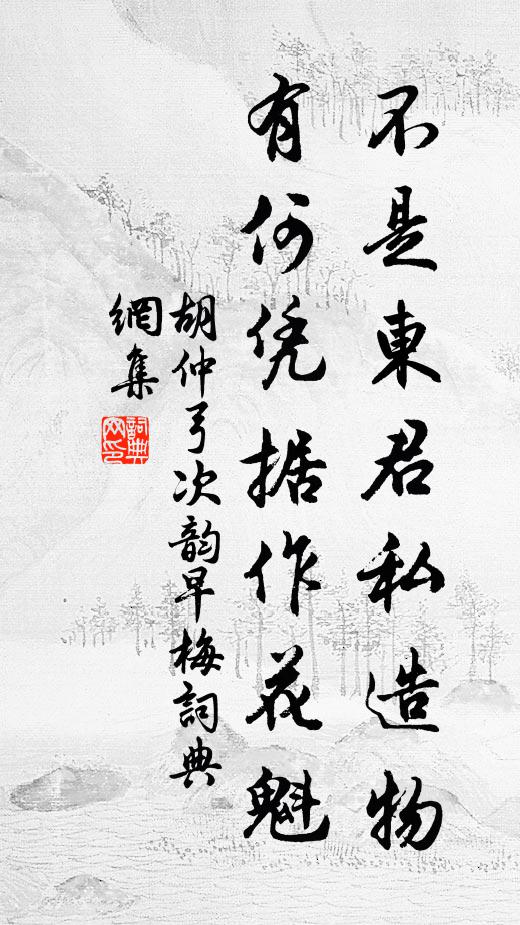 不是東君私造物
有何凭据作花魁
胡仲弓次韵早梅詞典
網集
詞典
网印